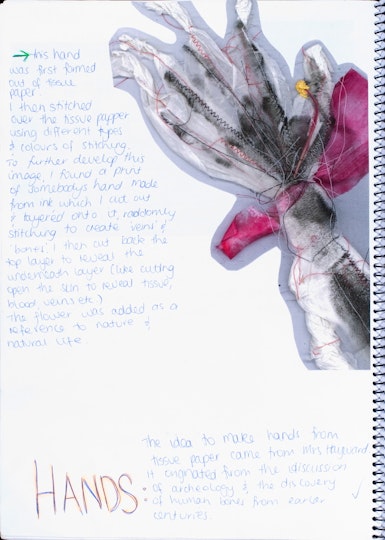 this hand
was first formed
out of tissue
paper.
I then stitched
over the tissue papper
using different types
& colours of stitching.
To further develop this
image, I found a print
of somebodys hand made
from ink which I cut out
& layered onto it, randomly
stitching to create 'veins' &
'bones'. I then cut back the
top layer to reveal the
underneath layer (like cutting
open the skin to reveal tissue,
blood, veins etc)
The flower was added as a
reference to nature &
natural life.
The idea to make hands from
tissue paper came from Mrs Hayward
it originated from the discussion
of archeology & the discovery
of human bones from earlier
centuries.
HANDS: